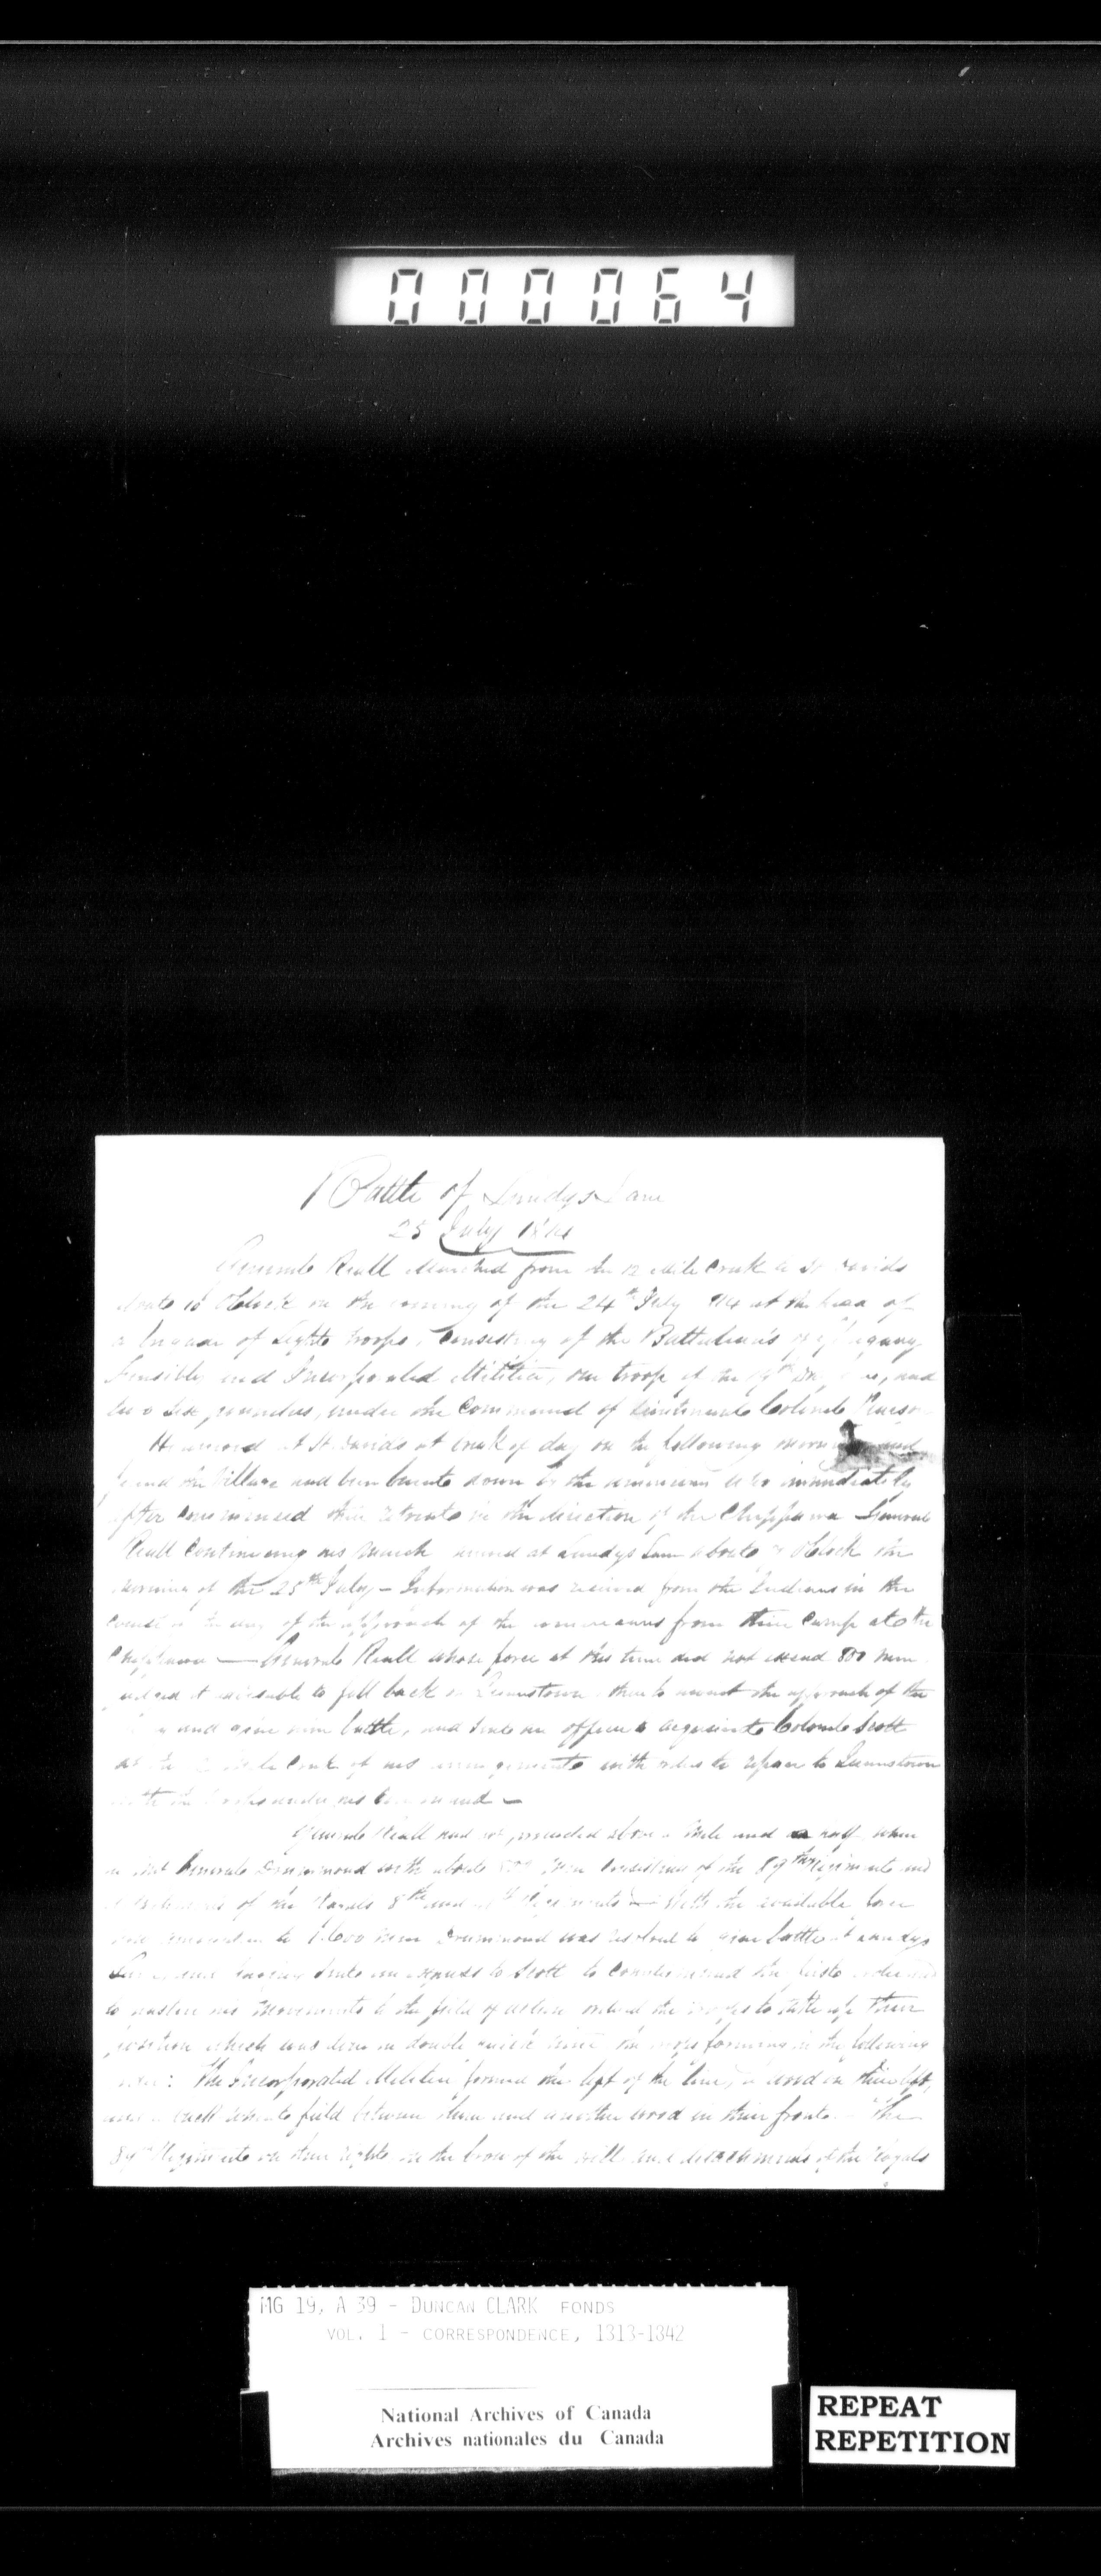 000064
Battle of Lundys Lane
25 July 1814
General Riall Marched from the 12 Mile Creek to St Davids
about 10 OClock on the evening of the 24th July 1814 at the head of
a brigade of Light troops, Consisting of the Battalions of Glengary
Fensibles and Incorporated Militia, one troop of the 19th and
two six pounders, under the Command of Lieutenant Colonel Pearson
He arrived at St Davids at break of day on the following morning and
found the Village had been burnt down by the americans who immediately
after commenced their retreat in the direction of the Chippawa General
Riall Continuing his march arrived at Lundys Lane about 7 OClock the
morning of the 25th July - Information was received from the Indians in the
course of the day of the approach of the americans from their Camp at the
Chippawa — General Riall whose force at this time did not exceed 800 men
judged it adviseable to fall back on Queenstown, than to await the approach of the
and give him battle, and sent an officer to acquaint Colonel Scott
at the 12 Mile Creek of his arrangements with orders to repair to Queenstown
with the under his Command —
General Riall had not proceeded above a Mile and a half, when
he met General Drummond with about 800 Men Consisting of the 89th Regiment and
detachments of the Royals 8th and Regiments — With the available force
now amounting to 1,600 men Drummond was resolved to give battle at Lundys
Lane and having sent an express to Scott to Countermand the first order and
to hasten his movements to the field of action ordered the troops to take up their
position which was done in double quick time the troops forming in the following
order: The Incorporated Militia formed the left of the line, a wood on their left,
and a buck wheat field between them and another wood in their front. — The
89th Regiment on their right on the brow of the hill and detachments of the Royals
MG 19, A 39 - DUNCAN CLARK FONDS
VOL. 1 - CORRESPONDENCE, 1813-1842
National Archives of Canada
Archives nationales du Canada
REPEAT
REPETITION